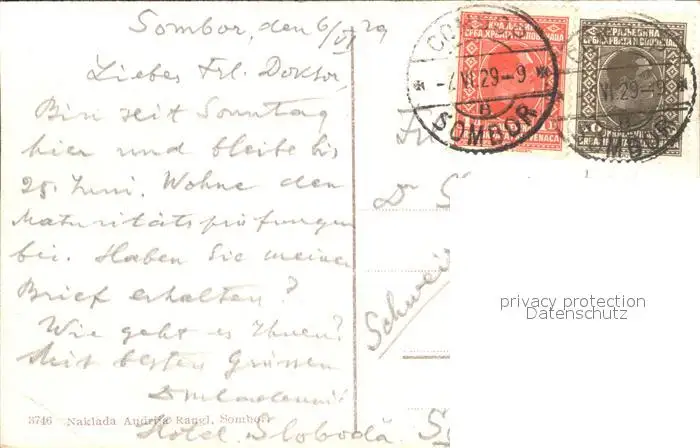 Sombor, den 6/VI 29
Liebes Frl. Doktor,
Bin seit Sonntag
hier und bleibe bis
25. Juni. Wohne den
Maturitätsprüfungen
bei. Haben Sie meinen
Brief erhalten?
Wie geht es Ihnen?
Mit besten Grüssen
Hotel Sloboda
Dr
Schweiz
3746 Naklada Andrija Rangl, Sombor
СОМБОР
-7.VI.29-9
SOMBOR
КРАЉЕВИНА
СРБА ХРВАТА И СЛОВЕНАЦА
КРАЉЕВИНА
СРБА ХРВАТА И СЛОВЕНАЦА
VI.29-9
privacy protection
Datenschutz